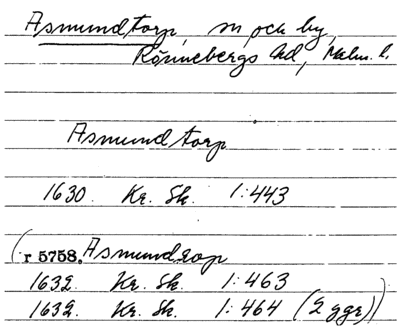 Asmundtorp, sn och by,
Rönnebergs hd, Malm. l.
Asmundtorp
1630. Kr. Sk. 1:443
(r 5758, Asmundrop
1632. Kr. Sk. 1:463
1632. Kr. Sk. 1:464 (2 ggr))